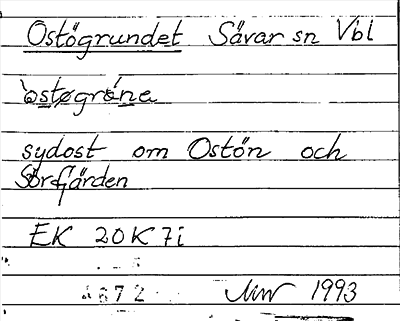 Ostögrundet Sävar sn Vbl
òstøgrόne
sydost om Ostön och
Sörfjärden
EK 20K7i
4672 1993